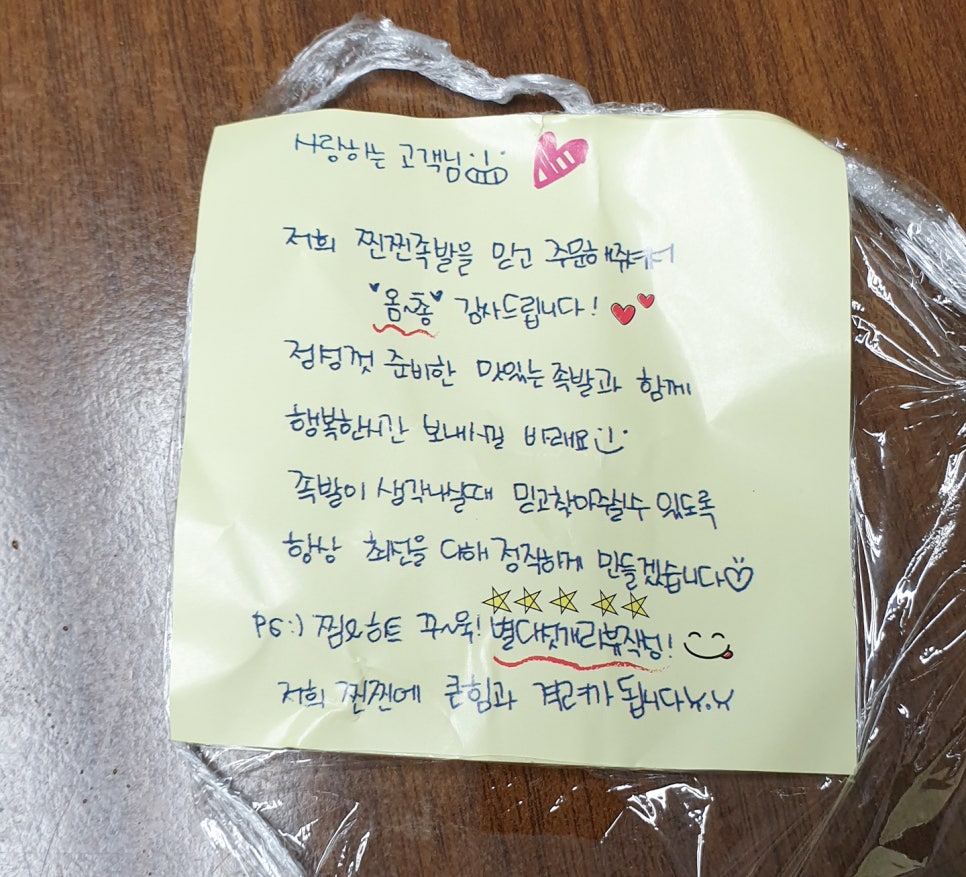 사랑하는 고객님
저희 찐찐족발을 믿고 주문해주셔서
옴~총 감사드립니다!
정성껏 준비한 맛있는족발과 함께
행복한시간 보내시길 바래요
족발이 생각나실때 믿고찾아주실수 있도록
항상 최선을 다해 정직하게 만들겠습니다
PS:) 찜&하트 꾸~욱! 별다섯개리뷰작성!
저희 찐찐에 큰힘과 격려가 됩니다Y.Y